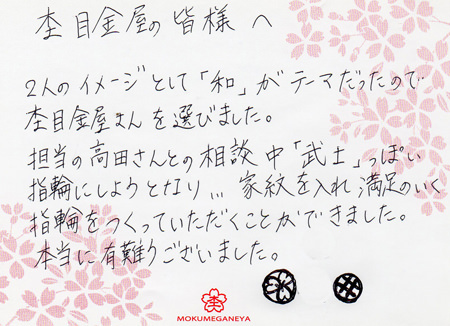 杢目金屋の皆様へ
2人のイメージとして「和」がテーマだったので
杢目金屋さんを選びました。
担当の高田さんとの相談中「武士」っぽい
指輪にしようとなり... 家紋を入れ満足のいく
指輪をつくっていただくことができました。
本当に有難うございました。
MOKUMEGANEYA